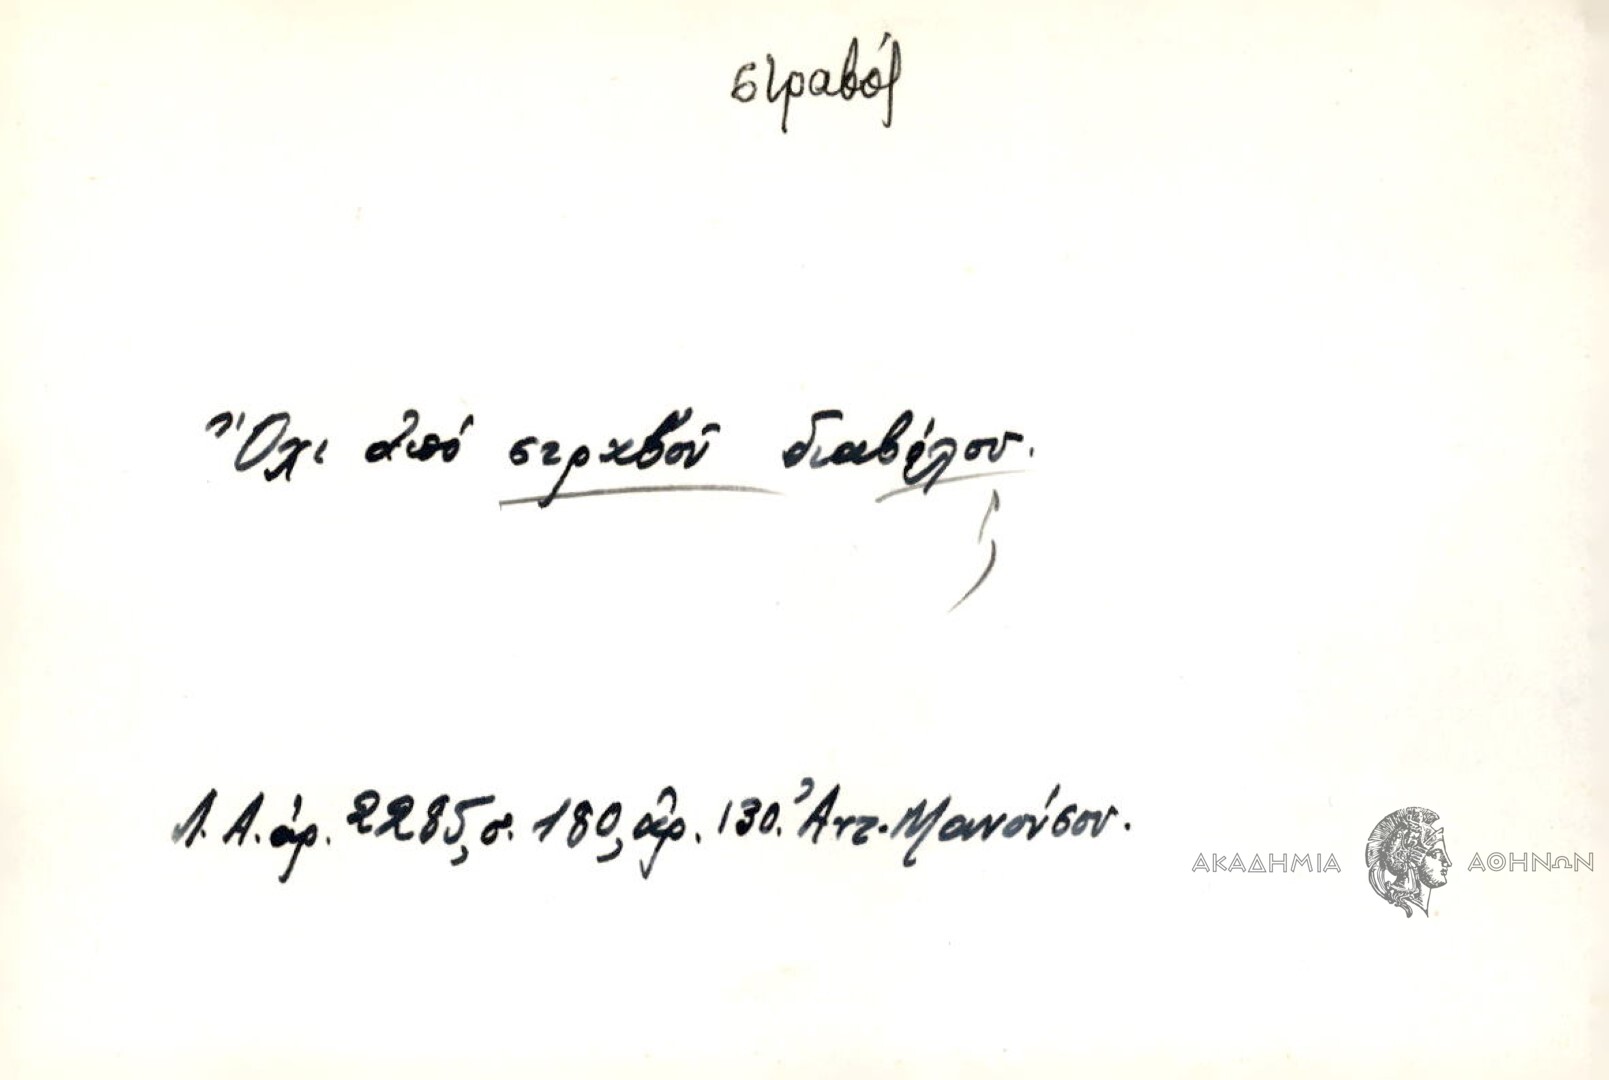 στραβός
Ὄχι ἀπό στραβοῦ διαβόλου.
Λ. Α. ἀρ. 2285, σ. 180, ἀρ. 130. Ἀντ. Μανούσου.
ΑΚΑΔΗΜΙΑ ΑΘΗΝΩΝ